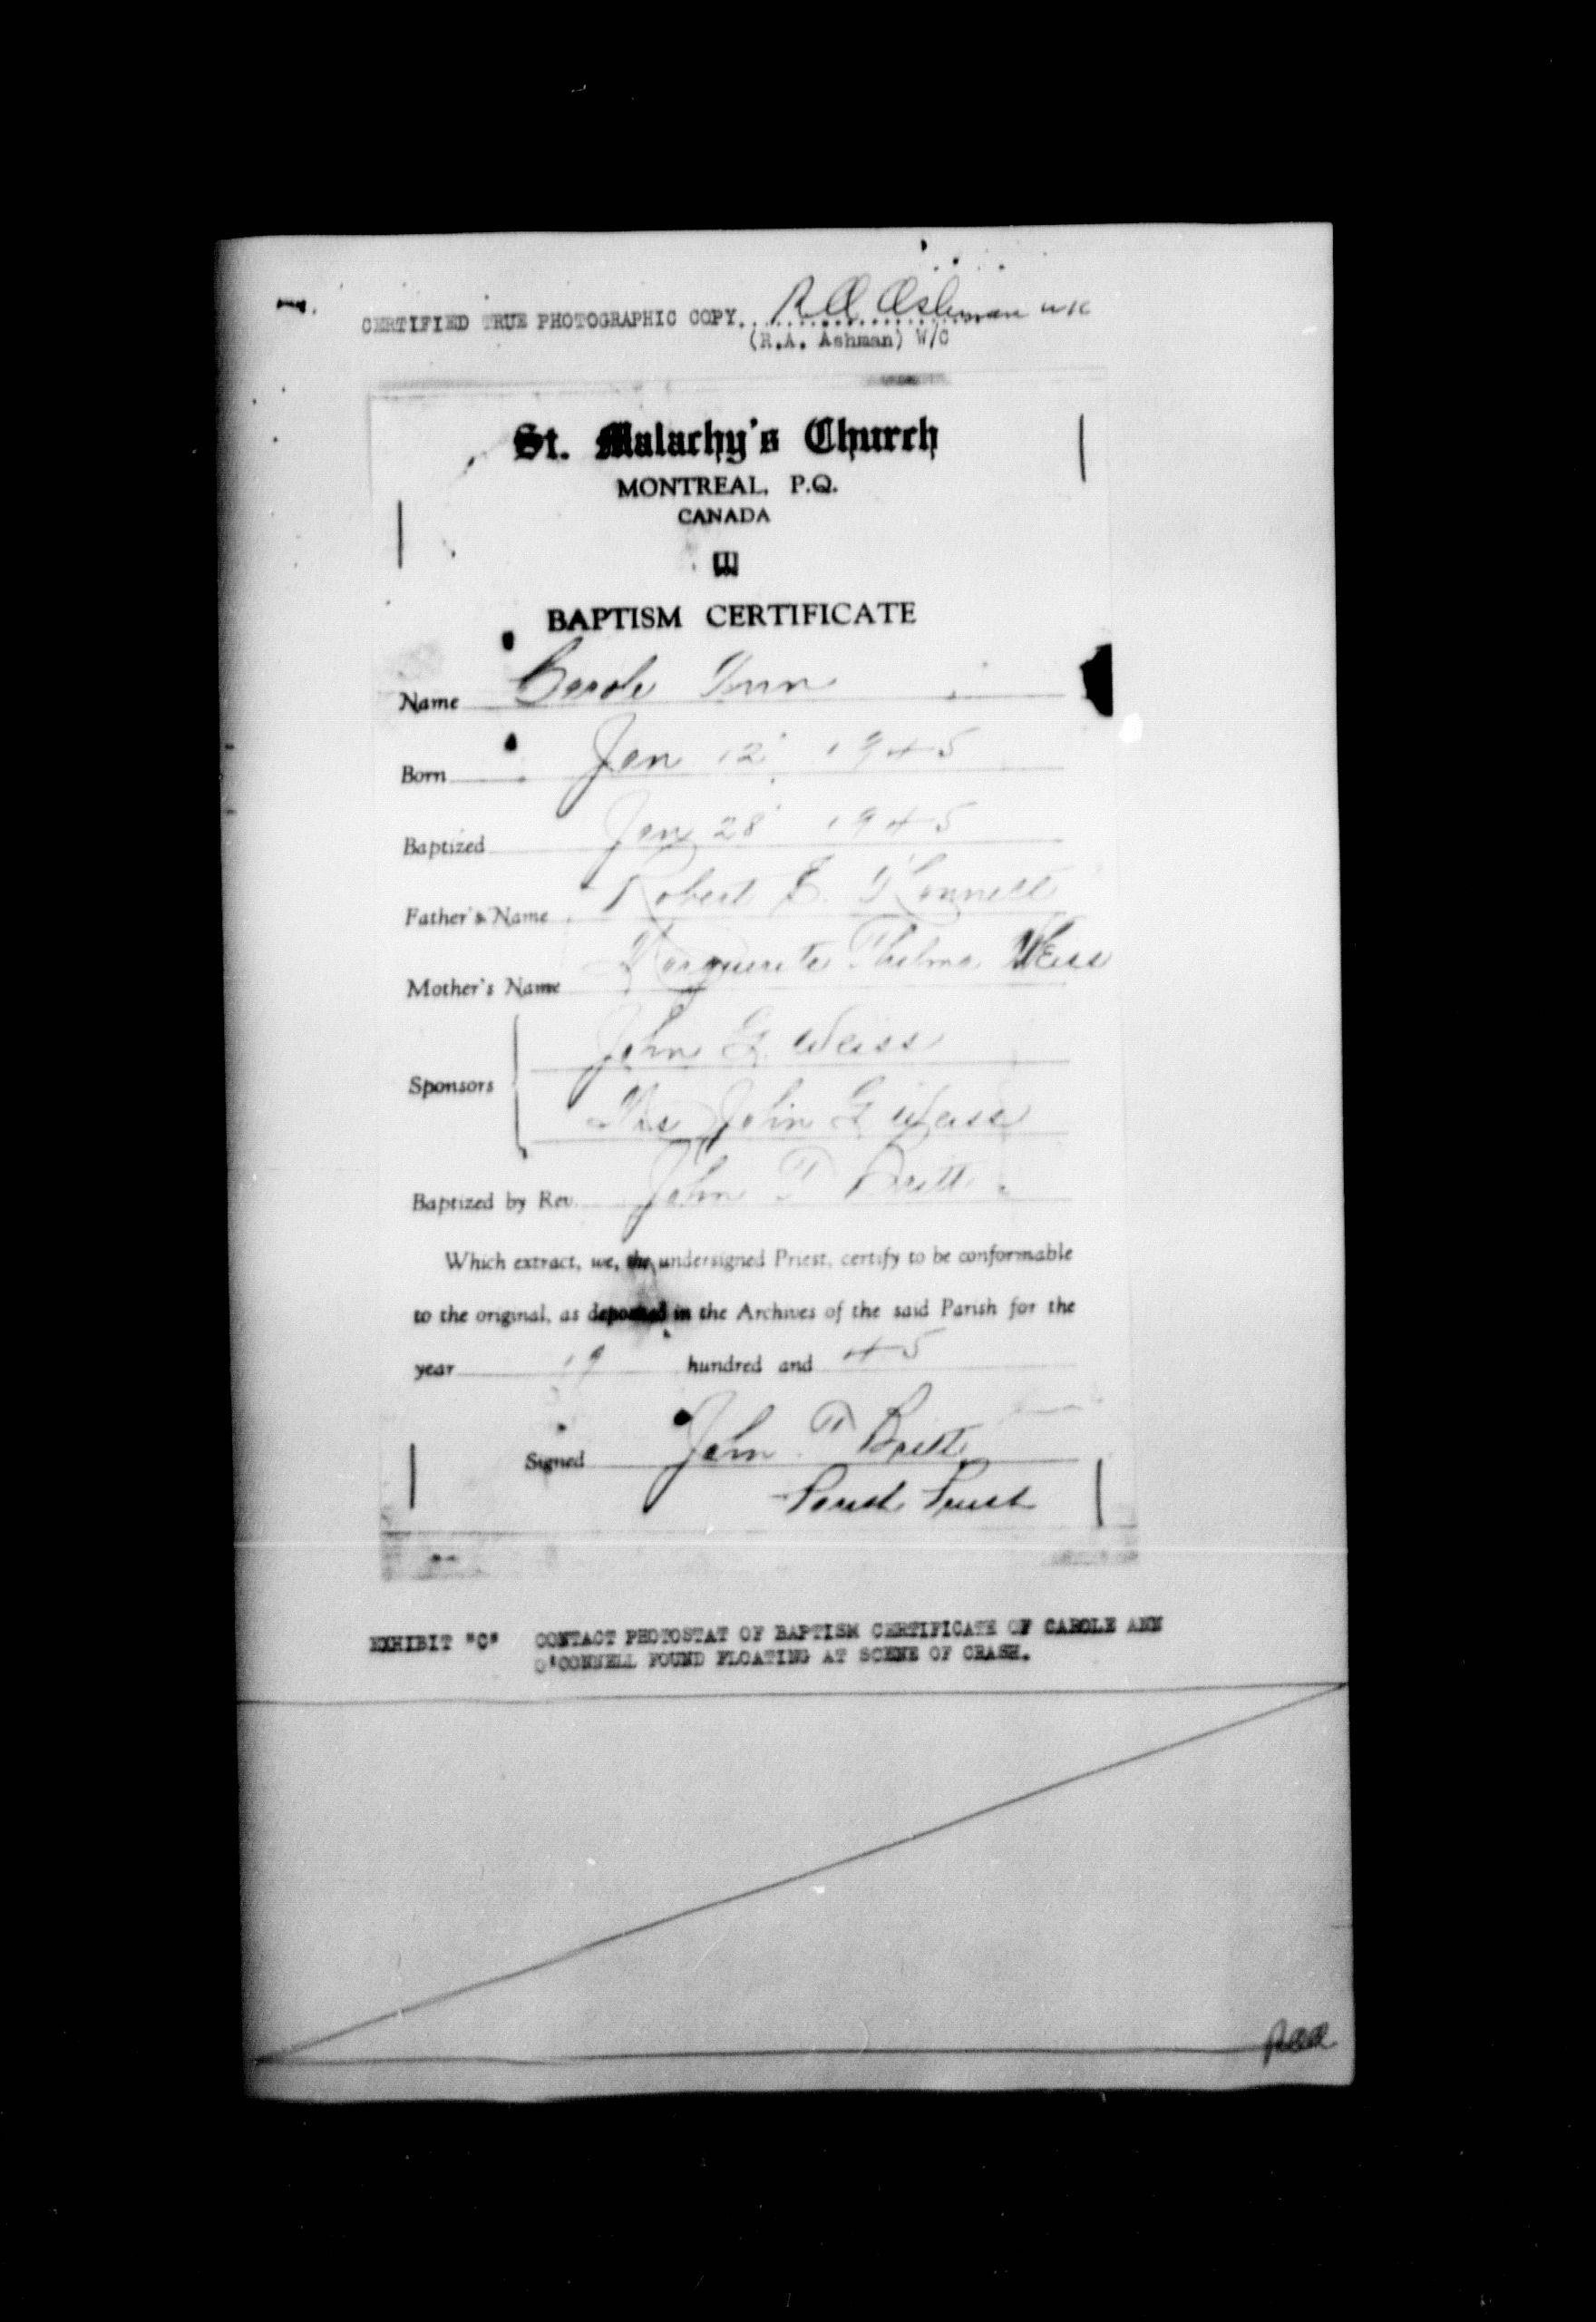 CERTIFIED TRUE PHOTOGRAPHIC COPY. R A Ashman W/C
(R.A. Ashman) W/C
St. Malachy's Church
MONTREAL, P.Q.
CANADA
BAPTISM CERTIFICATE
Name Carole Ann
Born Jan 12 1945
Baptized Jan 28 1945
Father's Name Robert E. O'Connell
Mother's Name Marguerite Thelma Weiss
Sponsors John G. Weiss
Mrs John G Weiss
Baptized by Rev. John T Britt
Which extract, we, the undersigned Priest, certify to be conformable
to the original, as deposited in the Archives of the said Parish for the
year 19 hundred and 45
Signed John T Britt
Parish Priest
EXHIBIT "C" CONTACT PHOTOSTAT OF BAPTISM CERTIFICATE OF CAROLE ANN
O'CONNELL FOUND FLOATING AT SCENE OF CRASH.
RAA